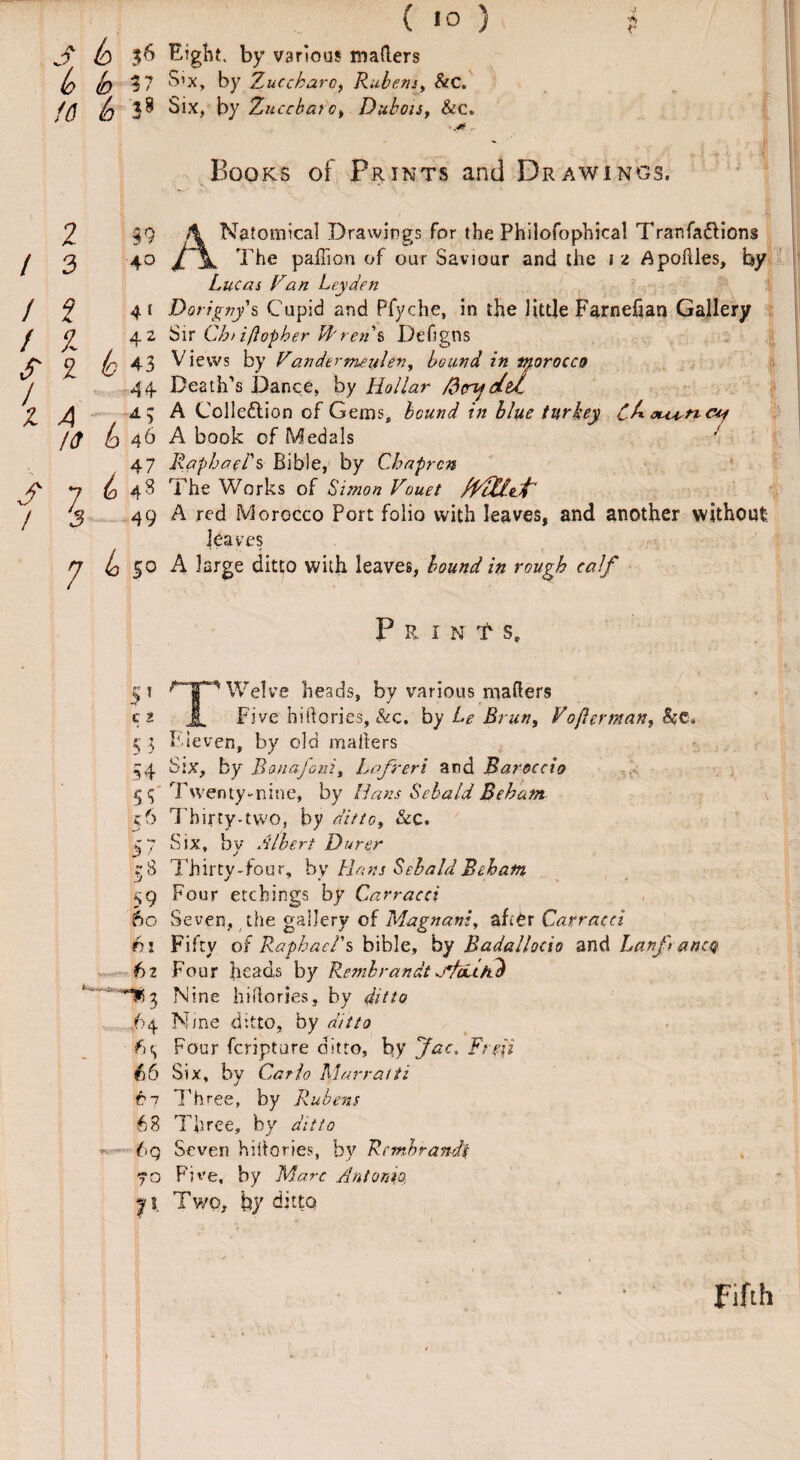 ( 10 )
5 6 36 Eight, by various maſters
6 6 37 Six, by Zuccharo, Rubens, &c.
10 6 38 Six, by Zuccharo, Dubois, &c.
Books of Prints and Drawings.
2 39 ANatomical Drawings for the Philoſophical Tranſactions
1 3 40 The paſſion of our Saviour and the 12 Apoſtles, by
Lucas Van Leyden
1 2 41 Dorigny's Cupid and Pſyche, in the little Farneſian Gallery
1 2 42 Sir Chriſtopher Wren's Deſigns
5 2 6 43 Views by Vandermeulen, bound in morocco
1 44 Death's Dance, by Hollar Boydel
2 4 45 A Collection of Gems, bound in blue turkey Chauncy
10 6 46 A book of Medals
47 Raphael's Bible, by Chapron
5 7 6 48 The Works of Simon Vouet Willet
1 3 49 A red Morocco Port folio with leaves, and another without
leaves
7 6 50 A large ditto with leaves, bound in rough calf
PRINTS.
51 TWelve heads, by various maſters
52 Five hiſtories, &c. by Le Brun, Voſterman, &c.
53 Eleven, by old maſters
54 Six, by Bonaſoni, Lafreri and Baroccio
55 Twenty-nine, by Hans Sebald Beham
56 Thirty-two, by ditto, &c.
57 Six, by Albert Durer
58 Thirty-four, by Hans Sebald Beham
59 Four etchings by Carracci
60 Seven, the gallery of Magnani, after Carracci
61 Fifty of Raphael's bible, by Badallocio and Lanfranco
62 Four heads by Rembrandt
63 Nine hiſtories, by ditto
64 Nine ditto, by ditto
65 Four ſcripture ditto, by Jac. Freii
66 Six, by Carlo Marratti
67 Three, by Rubens
68 Three, by ditto
69 Seven hiſtories, by Rembrandt
70 Five, by Marc Antonio
71 Two, by ditto
Fifth